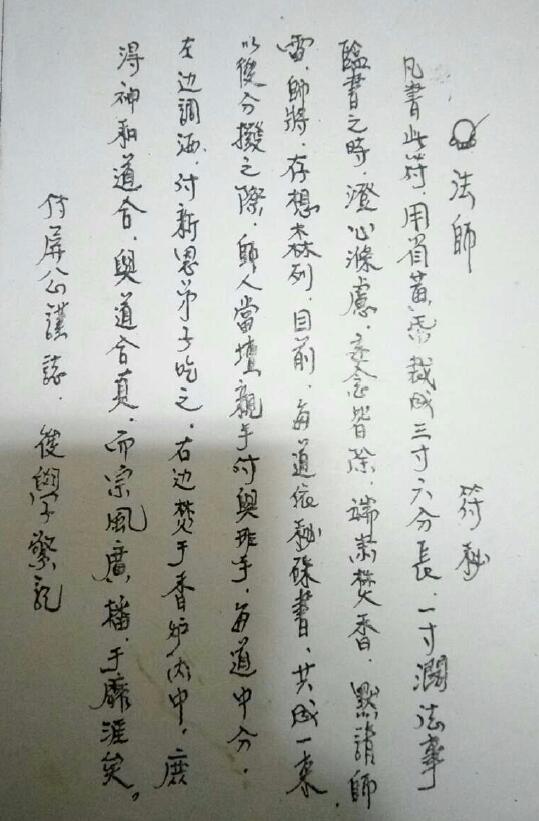 法師 符秘
凡書此符，用眉黃帋裁成三寸六分長，一寸濶法事
臨書之時，澄心滌慮，妄念皆除，端肅焚香，默請師
雷，帥將，存想森列，目前，每道依秘硃書，共成一束，
以後分撥之際，師人當壇親手付與班手，每道中分，
左边調酒，付新恩弟子吃之，右边焚于香炉内中，庶
得神和道合，與道合真，而宗風廣播，于靡涯矣。
付屏公謹誌，後學 記